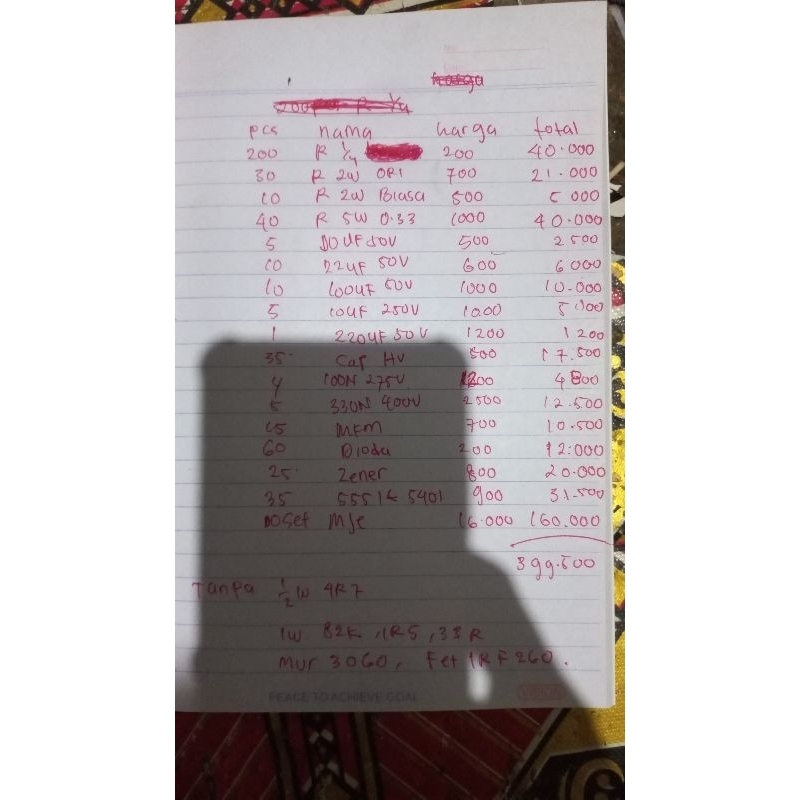 pcs nama harga total
200 R 1/4 200 40.000
30 R 2W ORI 700 21.000
10 R 2W Biasa 500 5000
40 R 5W 0.33 1000 40.000
5 10UF 50V 500 2500
10 22UF 50V 600 6000
10 100UF 50V 1000 10.000
5 10UF 250V 1000 5000
1 220UF 50V 1200 1200
35 Cap HV 500 17.500
4 100N 275V 1200 4800
5 330N 400V 2500 12.500
15 MKM 700 10.500
60 Dioda 200 12.000
25 Zener 800 20.000
35 5551 & 5401 900 31.500
10 Set Mje 16.000 160.000
399.500
Tanpa 1/2 W 4R7
1W 82K, 1R5, 33R
Mur 3060, Fet IRF260.
PEACE TO ACHIEVE GOAL